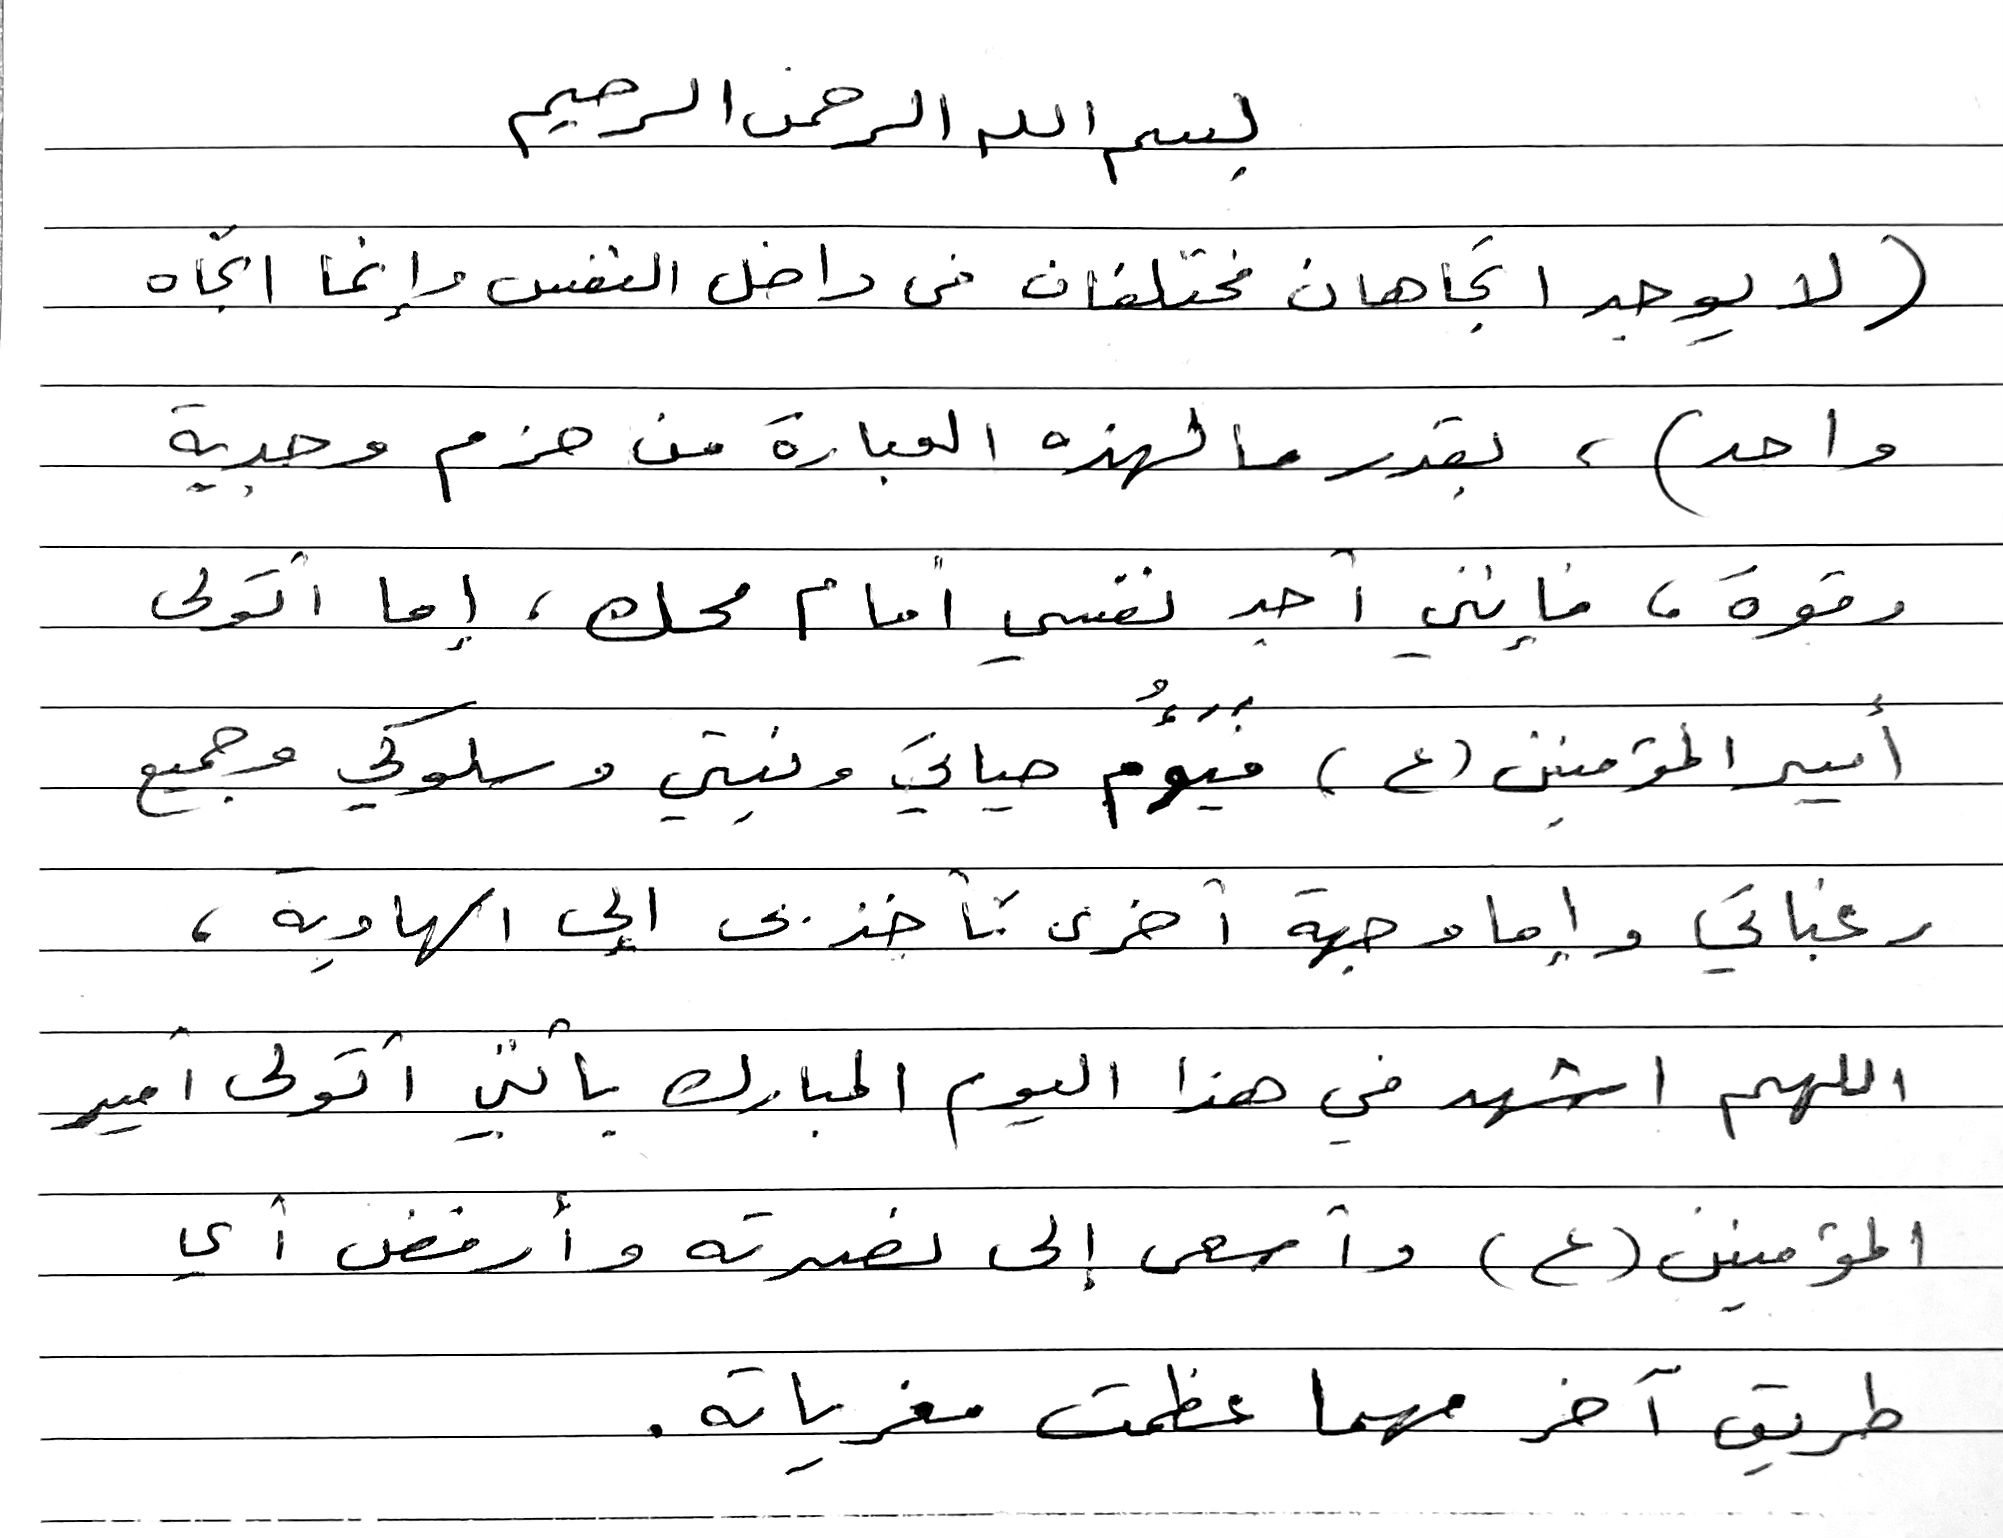 بسم الله الرحمن الرحيم
(لا يوجد اتجاهان مختلفان في داخل النفس وإنما اتجاه
واحد)، بقدر ما لهذه العبارة من حزم وجدية
وقوة، فإنني أجد نفسي أمام محك، إما أتولى
أمير المؤمنين (ع) فيَؤُم حياتي ونيتي وسلوكي وجميع
رغباتي وإما وجهة أخرى تأخذني إلى الهاوية،
اللهم اشهد في هذا اليوم المبارك بأنّني أتولى أمير
المؤمنين (ع) وأسعى إلى نصرته وأرفض أي
طريق آخر مهما عظمت مغرياته.